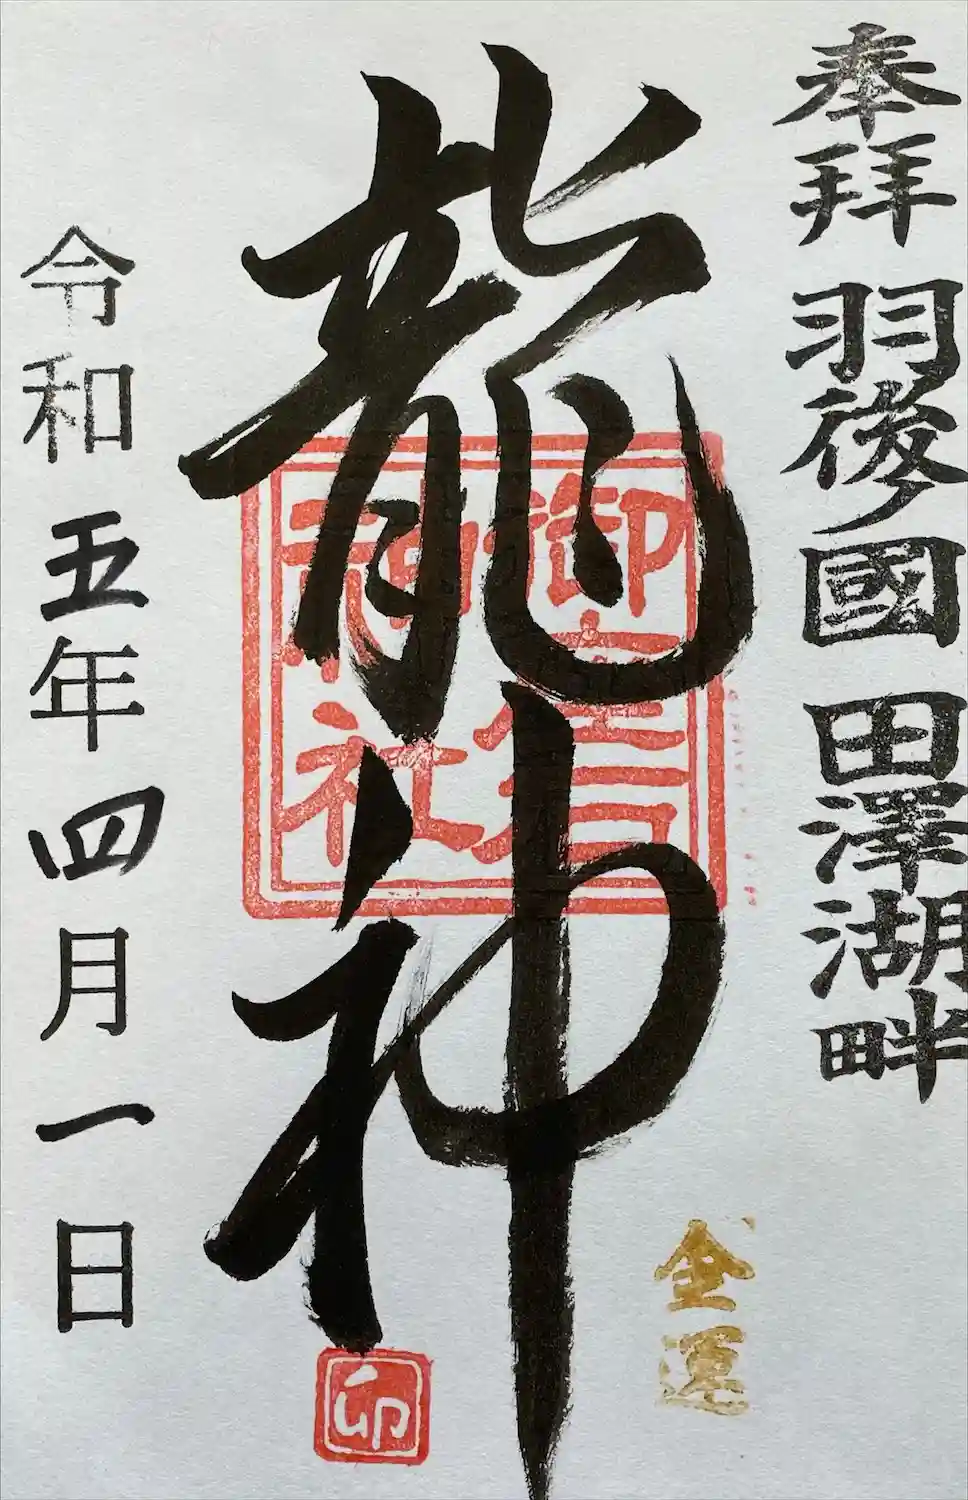 奉拝 羽後國 田澤湖畔
龍神
御座石神社
金運
卯
令和五年四月一日